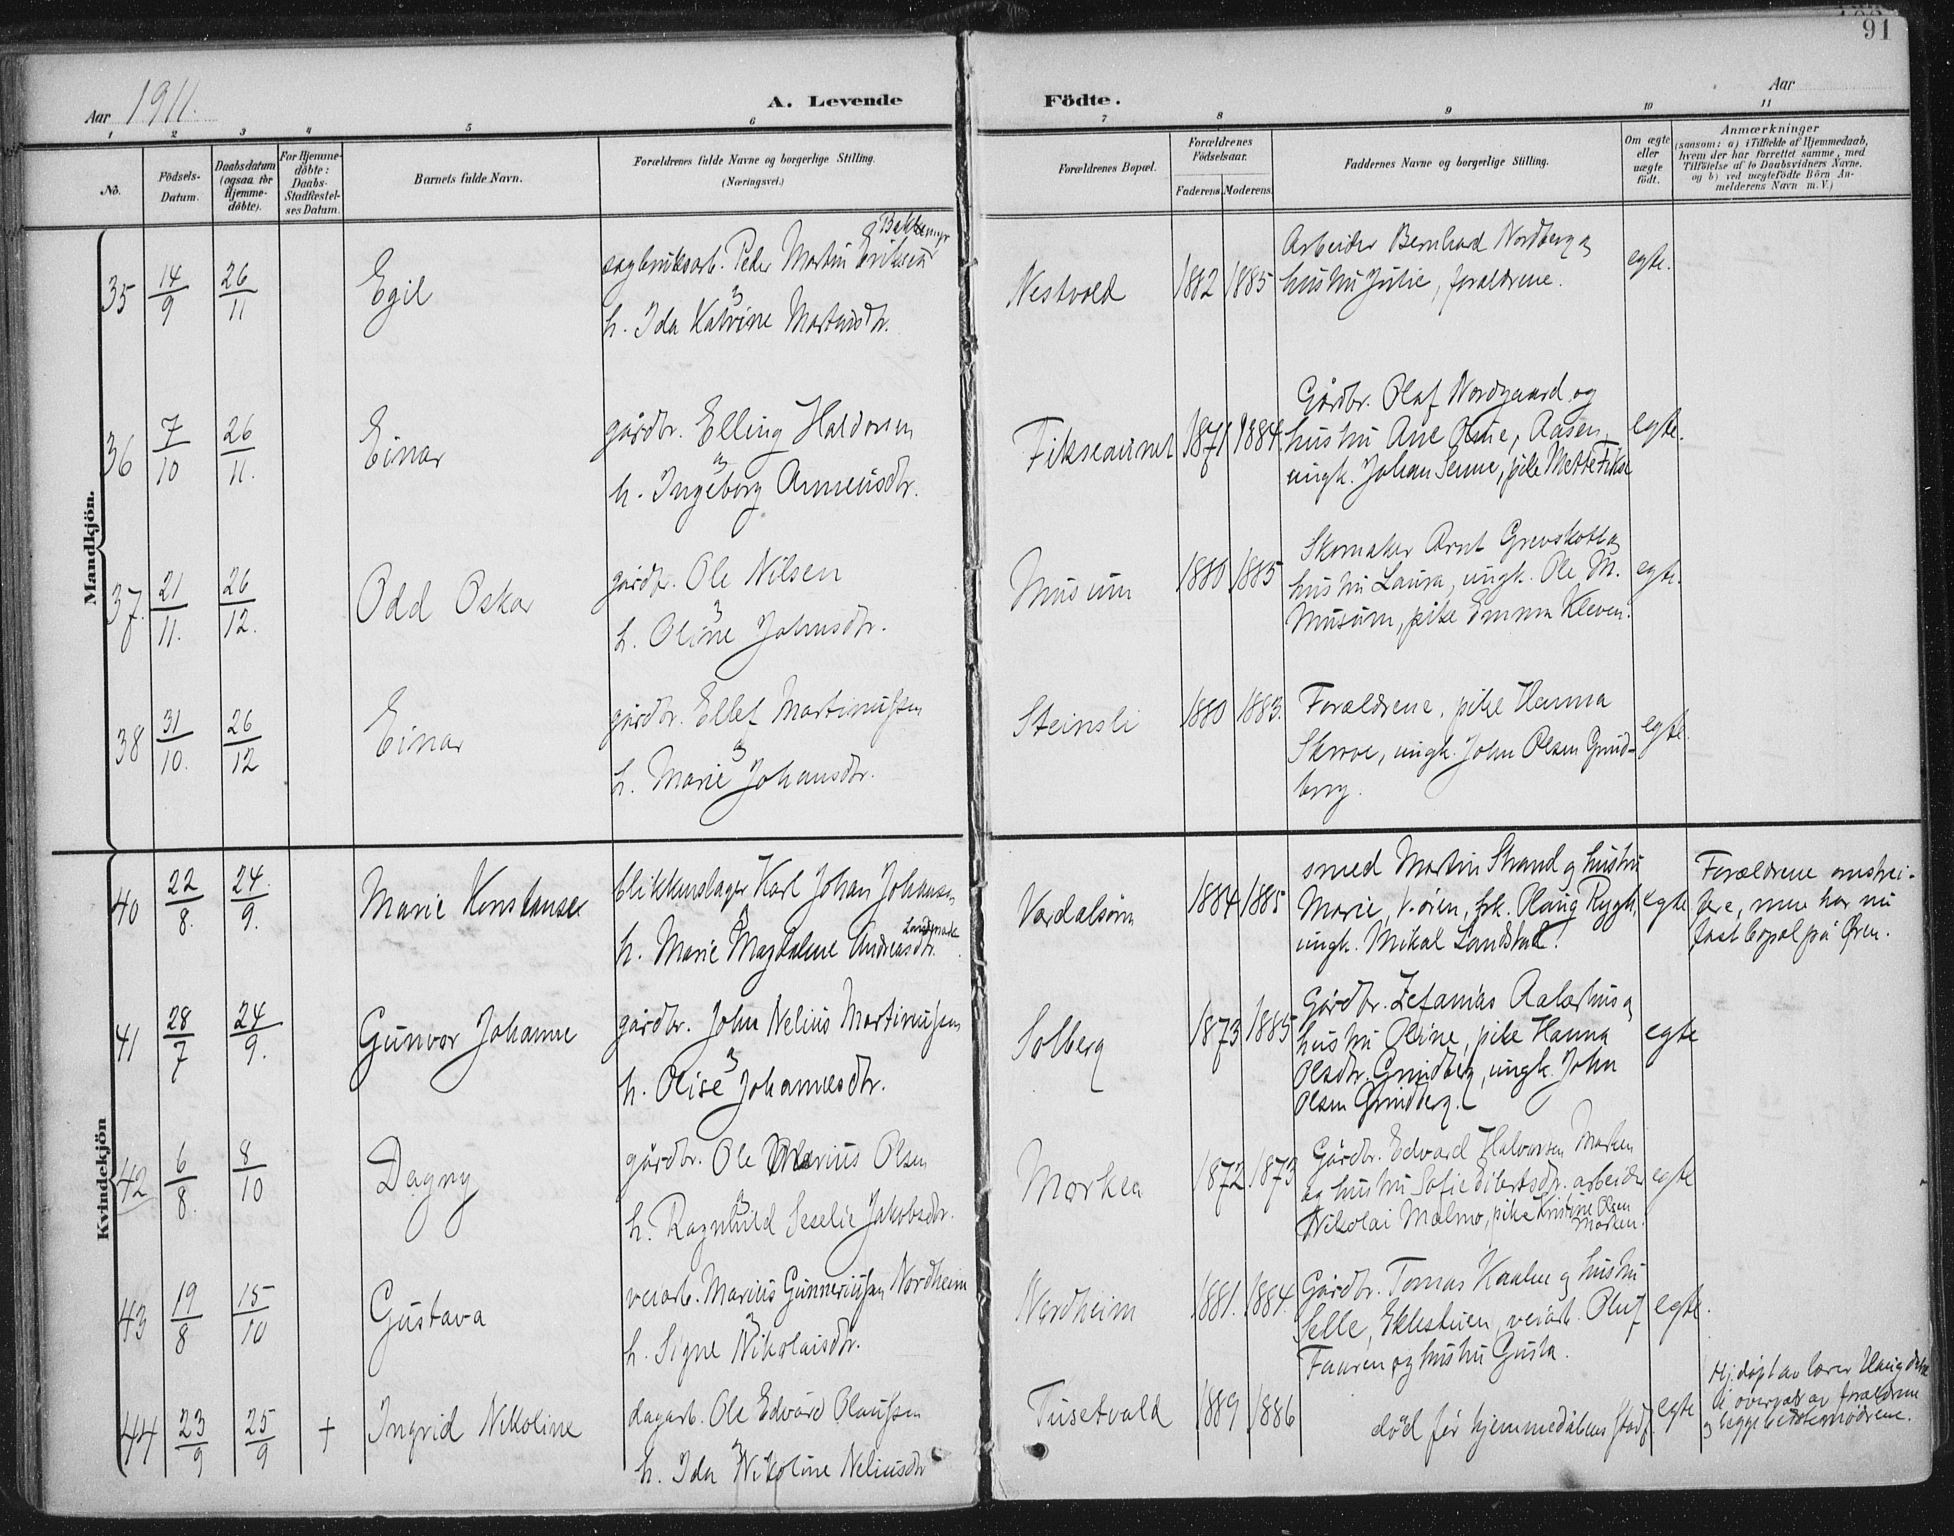 91
Aar 1911.
A. Levende Födte.
Aar
1 2 3 4 5 6 7 8 9 10 11
No.
Födsels-Datum.
Daabsdatum (ogsaa for Hjemme-döbte).
For Hjemme-döbte: Daabs-Stadfæstel-ses Datum.
Barnets fulde Navn.
Forældrenes fulde Navne og borgerlige Stilling.
(Næringsvei.)
Forældrenes Bopæl.
Forældrenes Födselsaar.
Faderens. Moderens.
Faddernes Navne og borgerlige Stilling.
Om ægte eller uægte födt.
Anmærkninger
(saasom: a) i Tilfælde af Hjemmedaab,
hvem der har forrettet samme, med
Tilföielse af to Daabsvidners Navne.
og b) ved uægtefödte Börn An-
melderens Navn m. V.)
Mandkjön.
35 14/9 26/11 Egil
sagbruksarb. Peder Martin Eriksen Bakkemyr
h. Ida Katrine Martinsdtr.
Nestvold 1882 1885
Arbeider Bernhard Nordberg og
hustru Julie, forældrene.
egte.
36 7/10 26/11. Einar
gårdbr. Elling Haldorsen
h. Ingeborg
Fikseaunet 1871 1884.
Gårdbr. Olaf Nordgaard og
hustru Ane Oline, Aasen,
ungk. Johan Senne, pike Mette Fikse
egte.
37. 21/11. 26/12. Odd Oskar
gårdbr. Ole Nilsen
h. Oline Johnsdtr.
Musum 1880 1885
Skomaker Arnt Grevskott og
hustru Laura, ungk. Ole M.
Musum, pike Emma Kleven.
egte.
38 31/10. 26/12 Einar
gårdbr. Ellef Martinussen
h. Marie Johansdtr.
Steinsli 1880 1883.
Forældrene, pike Hanna
Skrove, ungk. John Olsen Grund-
berg.
egte.
Kvindekjön
40 22/8. 24/9. Marie Konstanse
blikkenslager Karl Johan Johansen
h. Marie Magdalene Andreasdtr. Landsmark
Værdalsøren 1884 1885
smed Martin Strand og hustru
Marie, V.øren, frk. Plaug Rygh,
ungk. Mikal Landstad.
egte
Forældrene omstrei-
fere, men har nu
fast bopæl på Øren.
41 28/7 24/9. Gunvor Johanne
gårdbr. John Nelius Martinussen
h. Olise Johannesdtr.
Solberg 1873 1885
Gårdbr. Zefanias Aakerhus og
hustru Oline, pike Hanna
Olsdtr. Grundberg, ungk. John
Olsen Grundberg.
egte
42 6/8. 8/10 Dagny
gårdbr. Ole Marius Olsen
h. Ragnhild Seselie Jakobsdtr.
Marken 1872 1873
Gårdbr. Edvard Halvorsen Marken
og hustru Sofie Eilertsdtr. arbeider
Nikolai Malmo, pike Kristine Olsen
Marken.
egte
43 19/8 15/10 Gustava
veiarb. Marius Gunneriussen Nordheim
h. Signe Nikolaisdtr.
Nordheim 1881. 1884.
Gårdbr. Tomas Kaalen og hustru
Selle, Eklestuen, veiarb. Oluf
Faaren og hustru Gusta.
egte.
44 23/9 25/9 + Ingrid Nikoline
dagarb. Ole Edvard Olaussen
h. Ida Nikoline Neliusdtr
Tusetvald 1889 1886
død før hjemmedåbens stadf.
egte
Hj.døpt av lærer Haug
overvær av forældrene
og begge bedstemødrene.